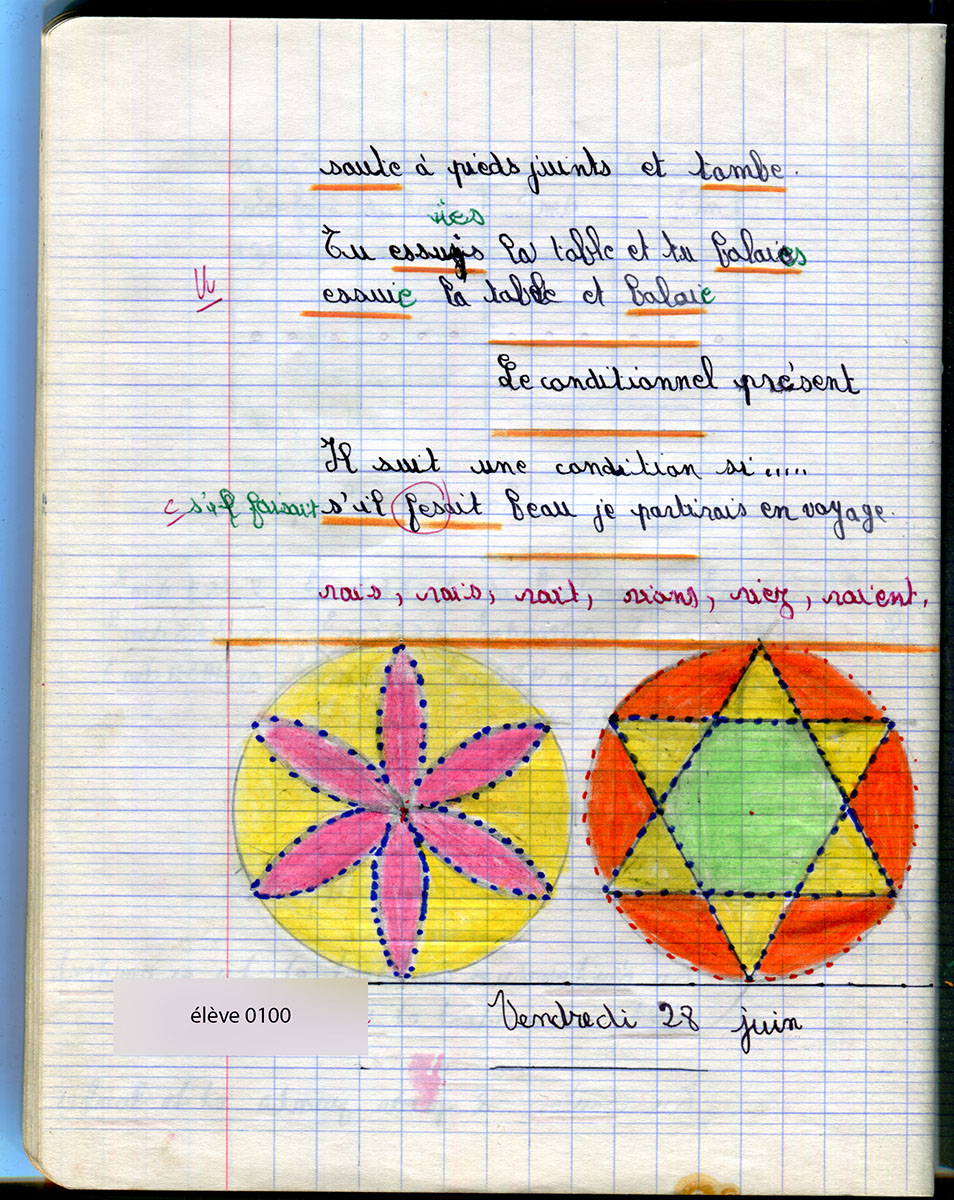 saute à pieds juints et tombe.
ies
Tu essujs la table et tu balaies
Vu
essuie la table et balaie
Le conditionnel présent
Il suit une condition si.....
s'il faisait s'il fesait beau je partirais en voyage.
rais, rais, rait, rions, riez, raient.
élève 0100
Vendredi 28 juin